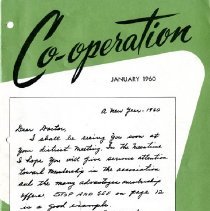 Co-operation
JANUARY 1960
A New Year - 1960
Dear Doctor,
I shall be seeing you soon at
your district meeting. In the meantime
I hope you will give serious attention
toward Membership in the association
and the many advantages membership
offers. STOP AND SEE on PAGE 12
is a good example.